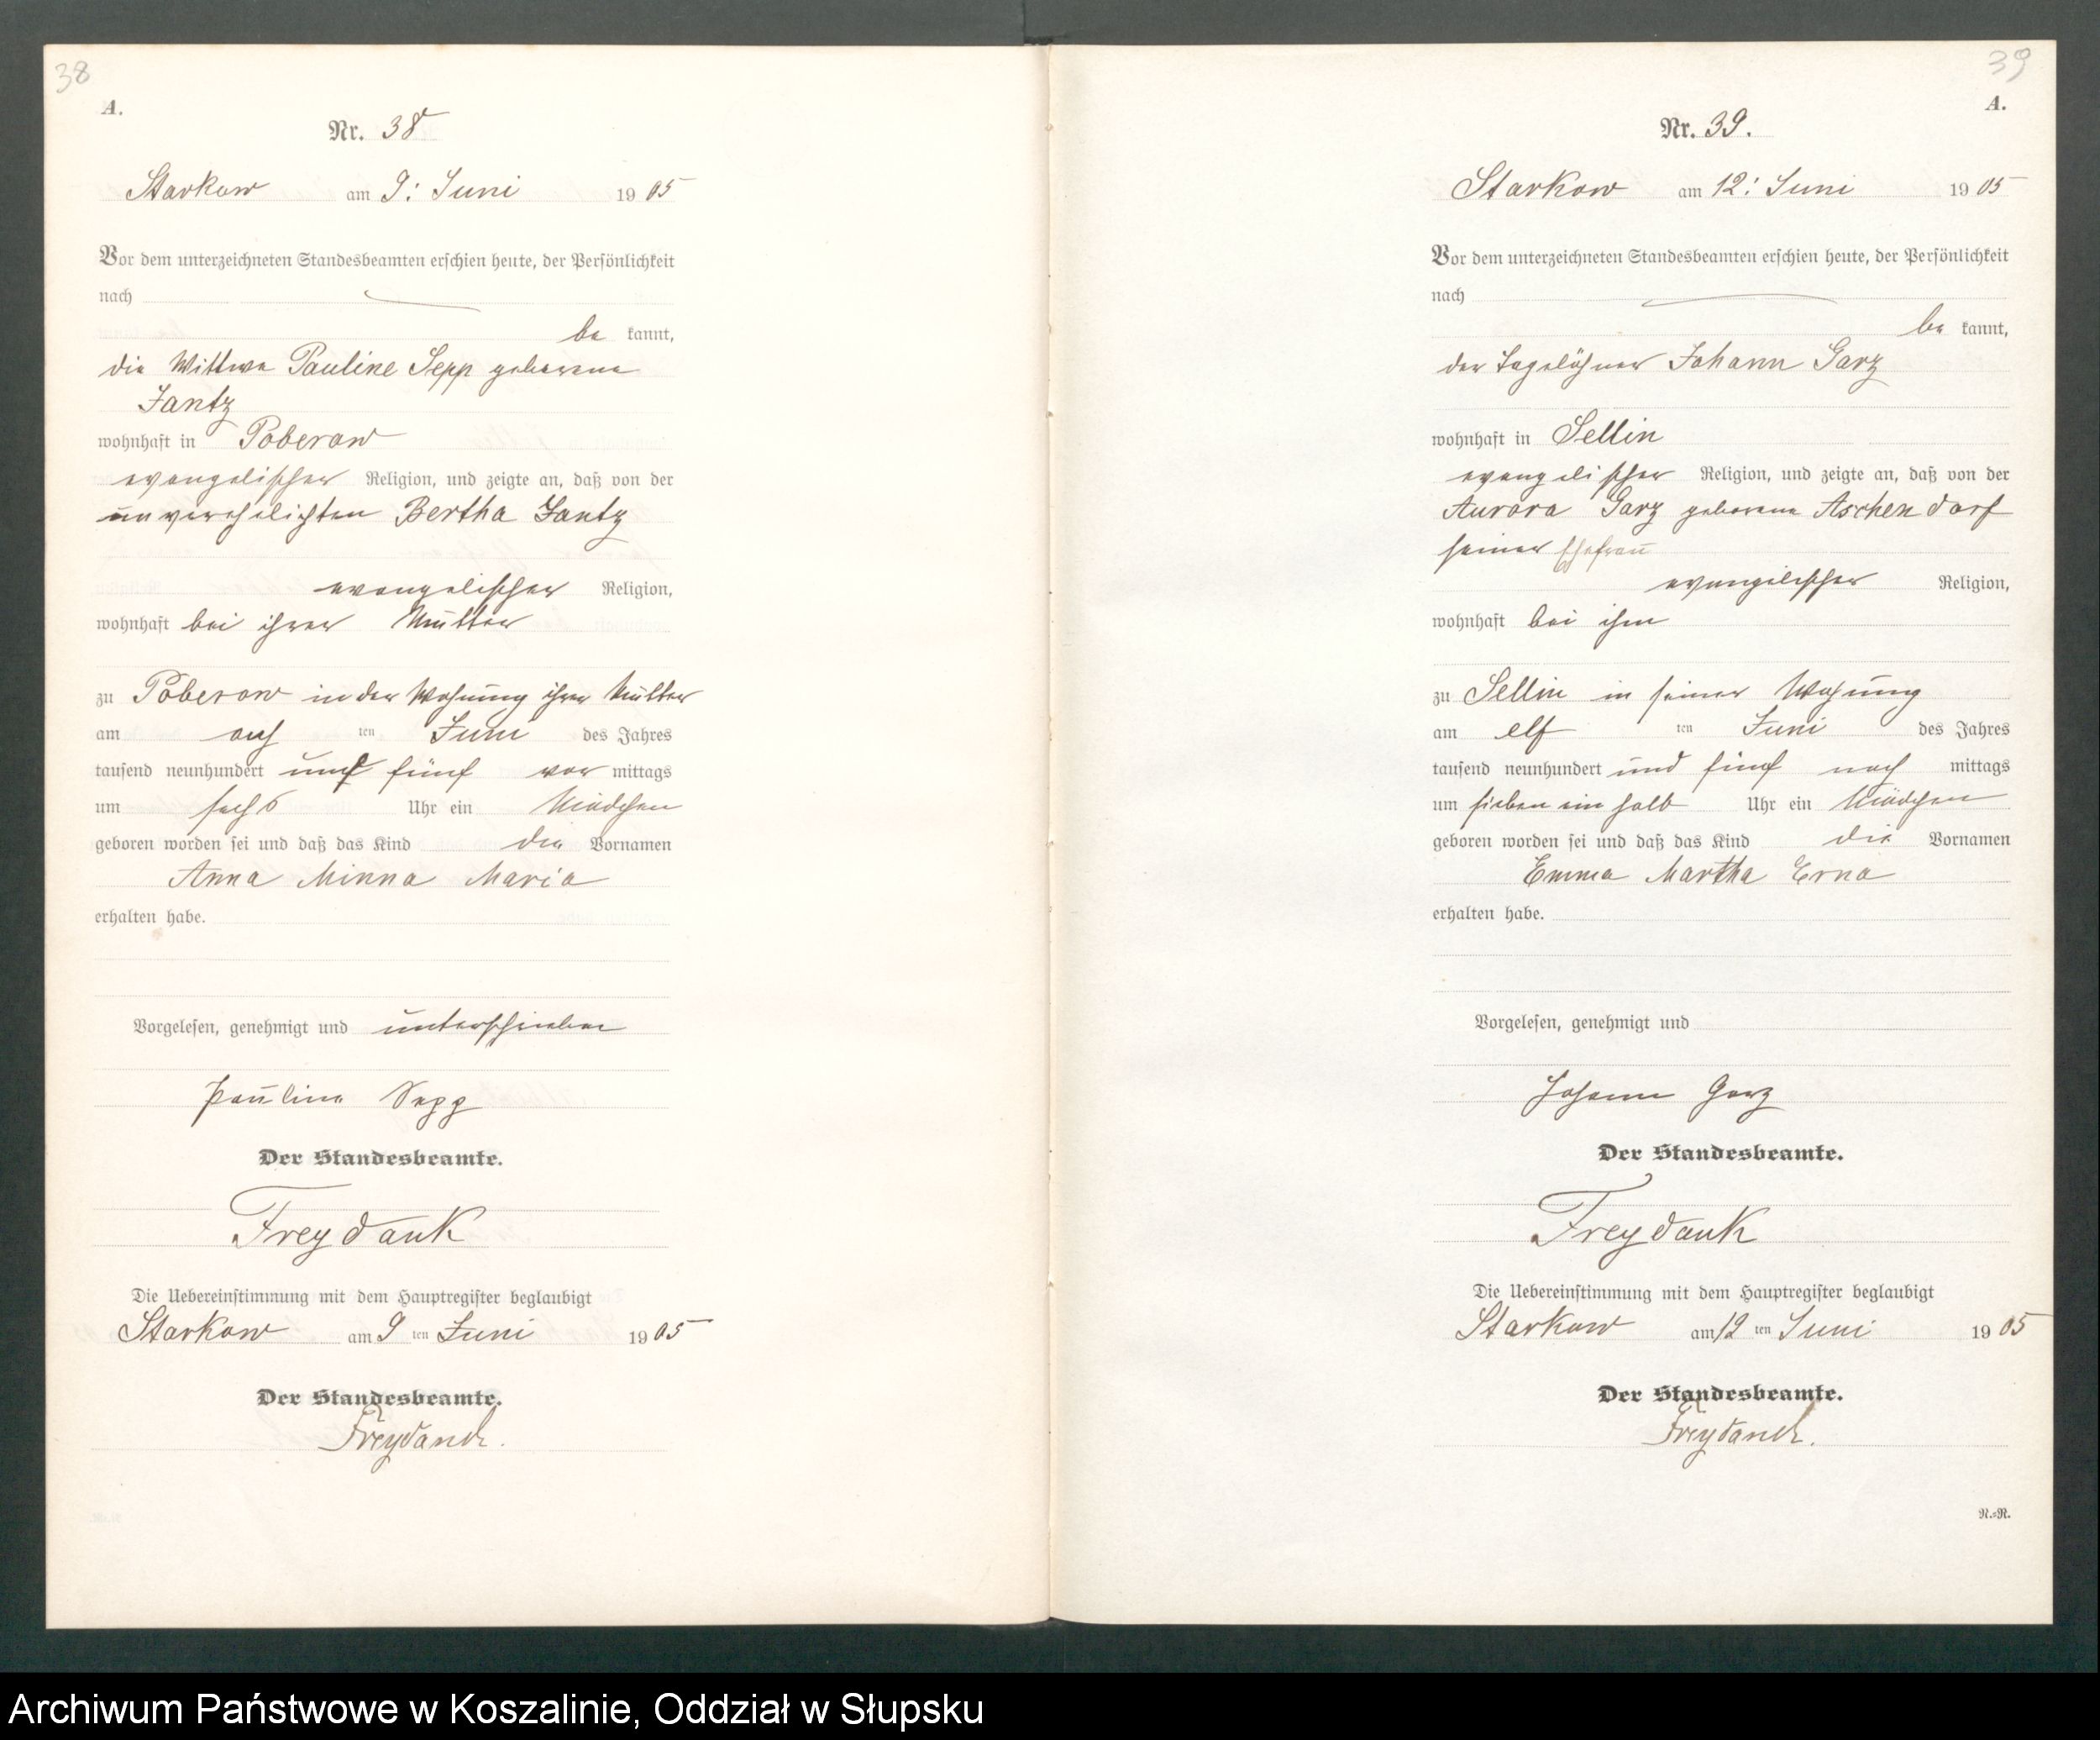 38
A.
Nr. 38
Starkow am 9: Juni 1905
Vor dem unterzeichneten Standesbeamten erschien heute, der Persönlichkeit
nach
be kannt,
die Wittwe Pauline Sepp geborene
Jantz
wohnhaft in Poberow
evangelischer Religion, und zeigte an, daß von der
unverehelichten Bertha Jantz
evangelischer Religion,
wohnhaft bei ihrer Mutter
zu Poberow in der Wohnung ihrer Mutter
am ten Juni des Jahres
tausend neunhundert und fünf vor mittags
um sechs Uhr ein Mädchen
geboren worden sei und daß das Kind die Vornamen
Anna Minna Maria
erhalten habe.
Vorgelesen, genehmigt und unterschrieben
Pauline Sepp
Der Standesbeamte.
Freydank
Die Uebereinstimmung mit dem Hauptregister beglaubigt
Starkow am 9 ten Juni 1905
Der Standesbeamte.
Freydank.
39
A.
Nr. 39.
Starkow am 12: Juni 1905
Vor dem unterzeichneten Standesbeamten erschien heute, der Persönlichkeit
nach
be kannt,
der Tagelöhner Johann Garz
wohnhaft in Sellin
evangelischer Religion, und zeigte an, daß von der
Aurora Garz geborene Aschendorf
seiner Ehefrau
evangelischer Religion,
wohnhaft bei ihm
zu Sellin in seiner Wohnung
am elf ten Juni des Jahres
tausend neunhundert und fünf nach mittags
um sieben ein halb Uhr ein Mädchen
geboren worden sei und daß das Kind die Vornamen
Emma Martha Erna
erhalten habe.
Vorgelesen, genehmigt und
Johann Garz
Der Standesbeamte.
Freydank
Die Uebereinstimmung mit dem Hauptregister beglaubigt
Starkow am 12 ten Juni 1905
Der Standesbeamte.
Freydank.
N.=R.
Archiwum Państwowe w Koszalinie, Oddział w Słupsku